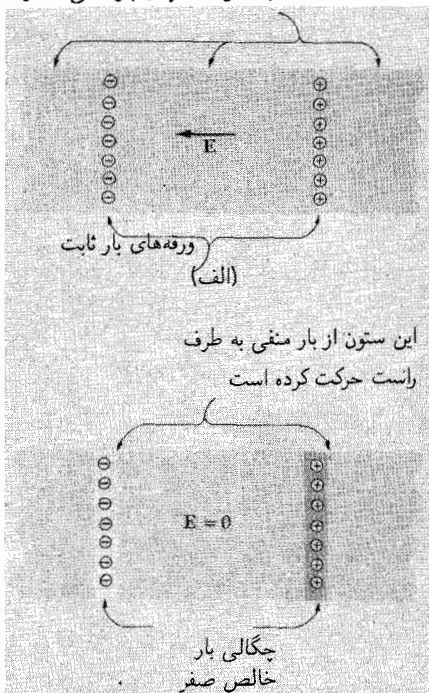 E
ورقه‌های بار ثابت
(الف)
این ستون از بار منفی به طرف
راست حرکت کرده است
E = 0
چگالی بار
خالص صفر